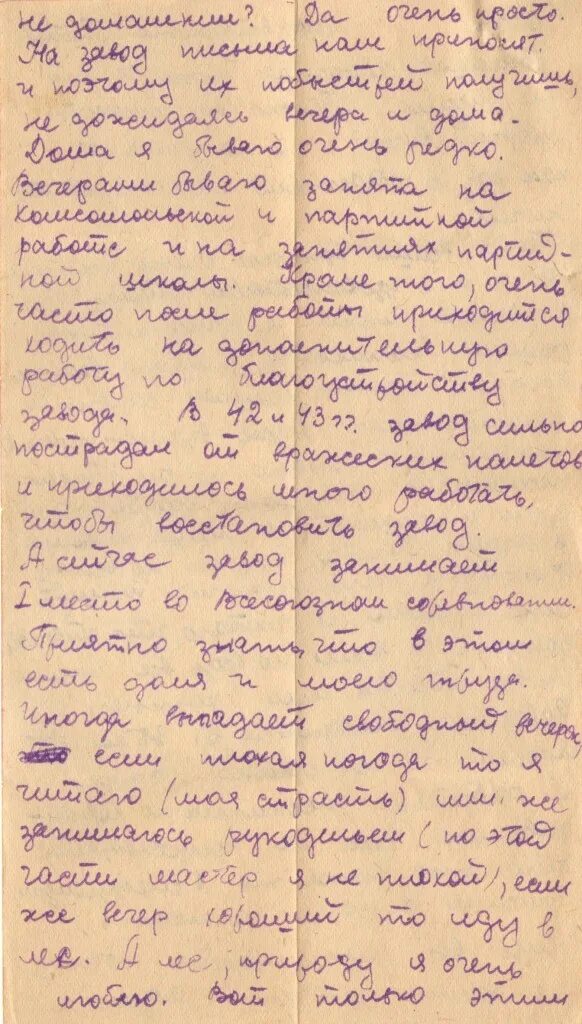 не домашнии? Да очень просто.
На завод письма нам приносят.
и поэтому их побыстрей получишь,
не дожидаясь вечера и дома.
Дома я бываю очень редко.
Вечерами бываю занята на
комсомольской и партийной
работе и на занятиях партий-
ной школы. Кроме того, очень
часто после работы приходится
ходить на дополнительную
работу по благоустройству
завода. В 42 и 43 г.г. завод сильно
пострадал от вражеских налетов
и приходилось много работать,
чтобы восстановить завод.
А сейчас завод занимает
I место во Всесоюзном соревновании.
Приятно знать, что в этом
есть доля и моего труда.
Иногда выпадает свободный вечерок,
если плохая погода то я
читаю (моя страсть) или же
занимаюсь рукодельем (по этой
части мастер я не плохой), если
же вечер хороший то иду в
лес. А лес, природу я очень
люблю. Вот только этим